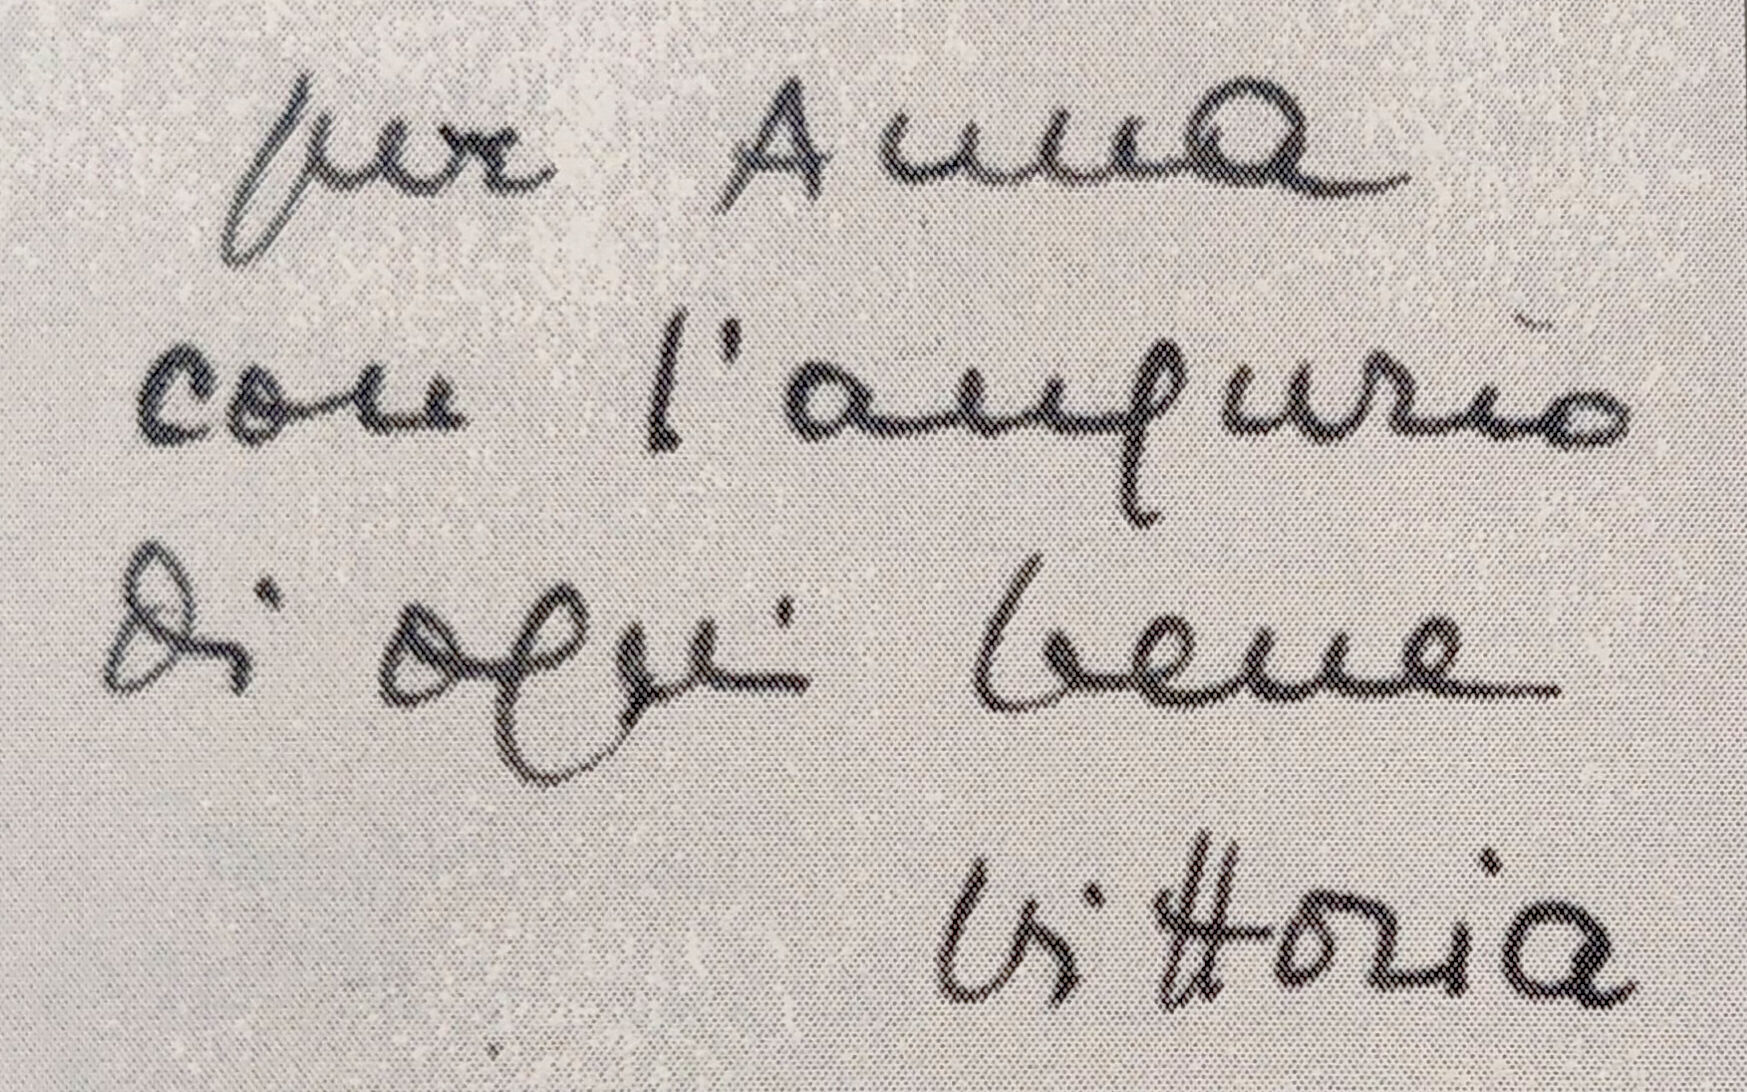 per Anna
con l'augurio
di ogni bene
Vittoria